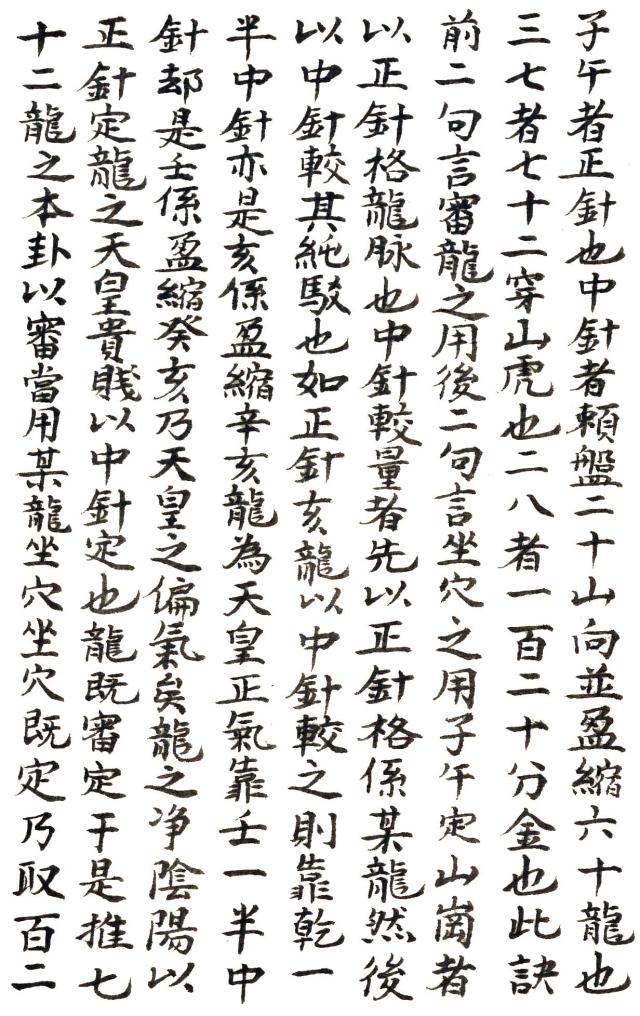 子午者正針也中針者賴盤二十山向並盈縮六十龍也
三七者七十二穿山虎也二八者一百二十分金也此訣
前二句言審龍之用後二句言坐穴之用子午定山崗者
以正針格龍脉也中針較量者先以正針格係某龍然後
以中針較其純駁也如正針亥龍以中針較之則靠乾一
半中針亦是亥係盈縮辛亥龍為天皇正氣靠壬一半中
針却是壬係盈縮癸亥乃天皇之偏氣矣龍之净陰陽以
正針定龍之天皇貴賤以中針定也龍既審定于是推七
十二龍之本卦以審當用某龍坐穴坐穴既定乃取百二